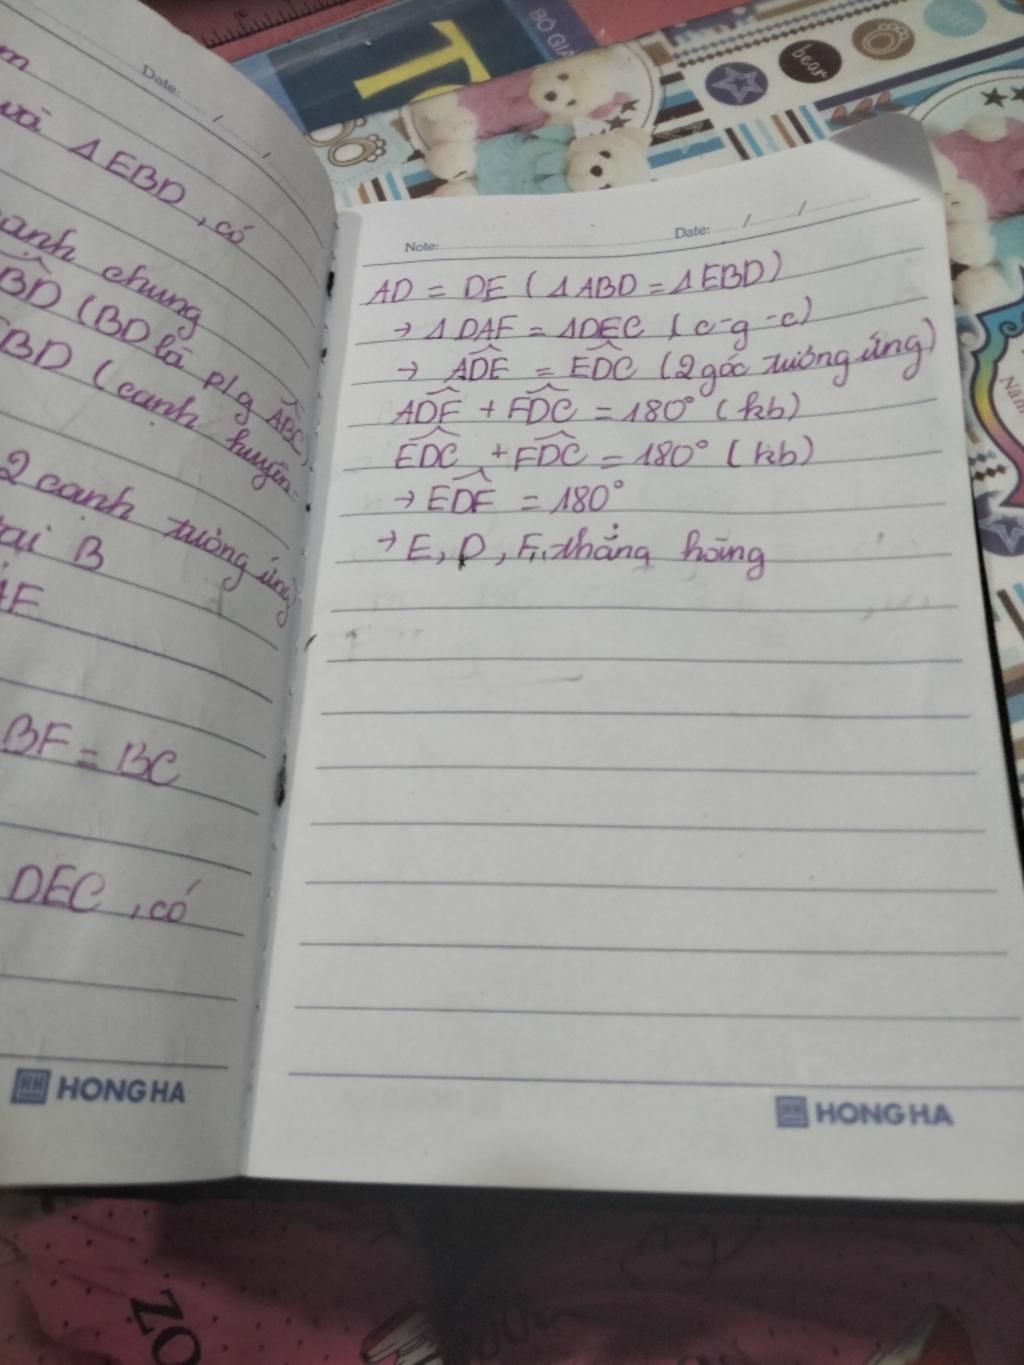 Date: / /
và ΔEBD, có
cạnh chung
BD (BD là p/g ABC)
EBD (cạnh huyền-
2 cạnh tương ứng)
tại B
AF
BF = BC
DEC, có
HONG HA
Note: Date: / /
AD = DE (ΔABD = ΔEBD)
→ ΔDAF = ΔDEC (c-g-c)
→ ADF = EDC (2 góc tương ứng)
ADF + FDC = 180° (kb)
EDC + FDC = 180° (kb)
→ EDF = 180°
→ E, D, F thẳng hàng
HONG HA
bear
BỘ GIÁ
Năm
ZO